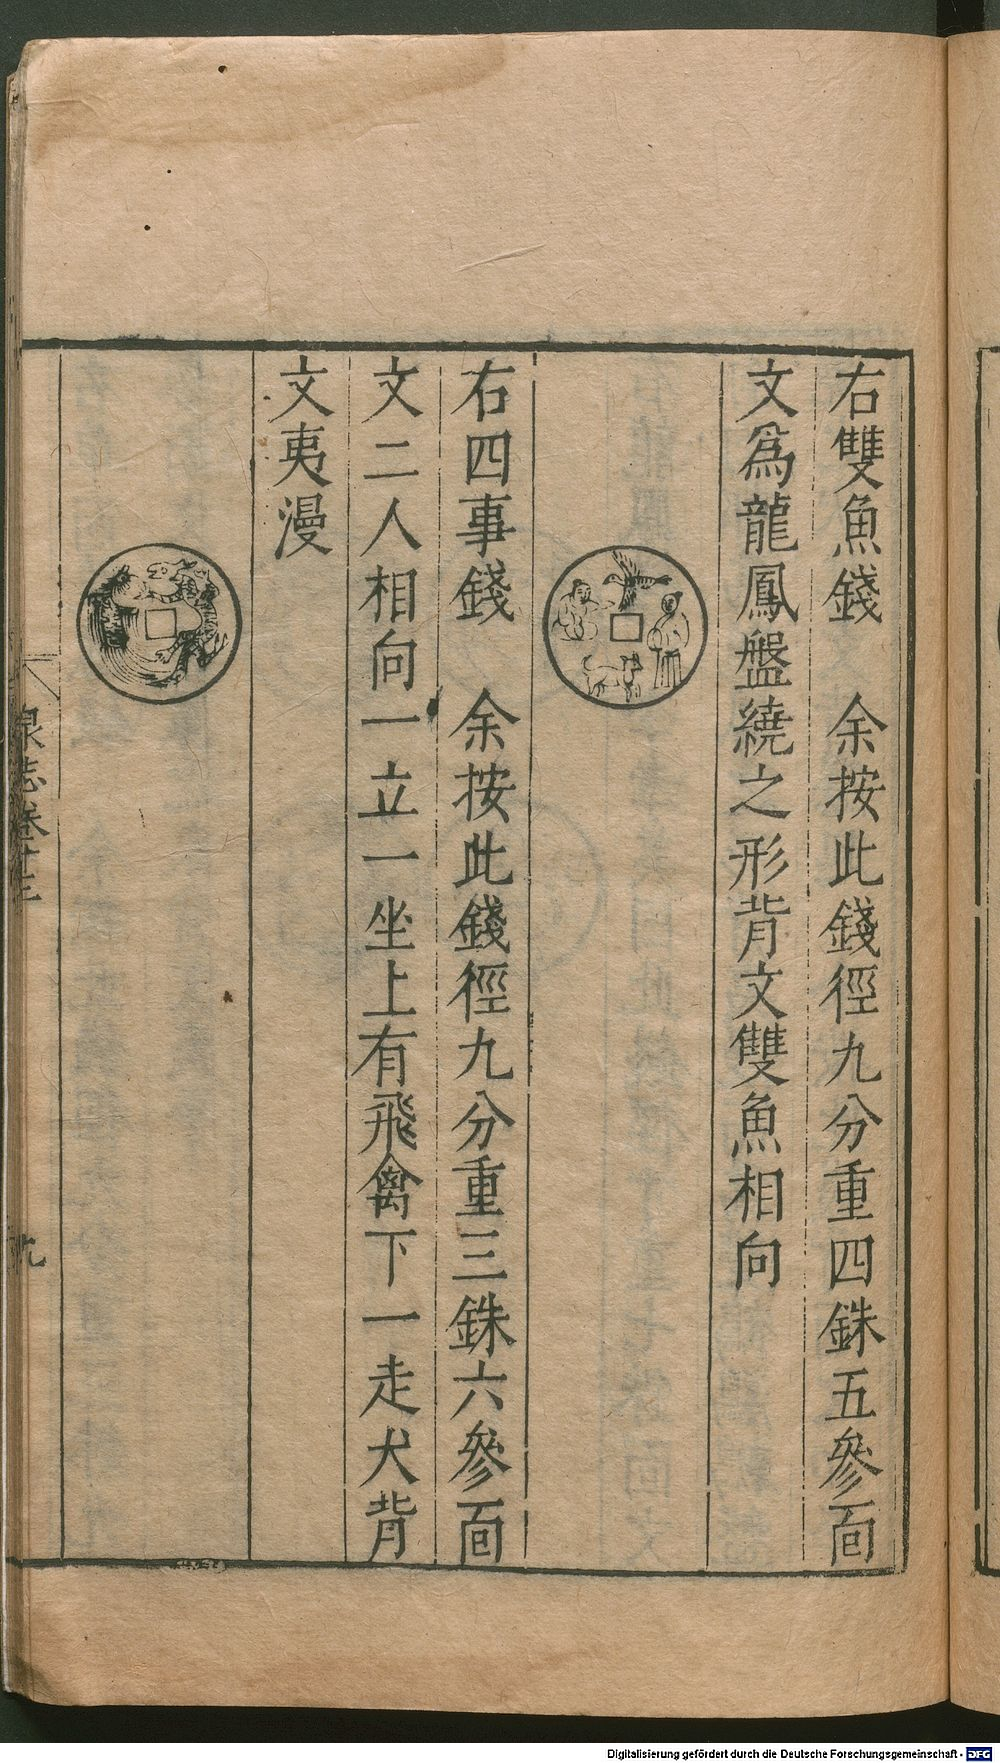 右雙魚錢　余按此錢徑九分重四銖五參面
文爲龍鳳盤繞之形背文雙魚相向
右四事錢　余按此錢徑九分重三銖六參面
文二人相向一立一坐上有飛禽下一走犬背
文夷漫
泉志卷十五
九
Digitalisierung gefördert durch die Deutsche Forschungsgemeinschaft - DFG